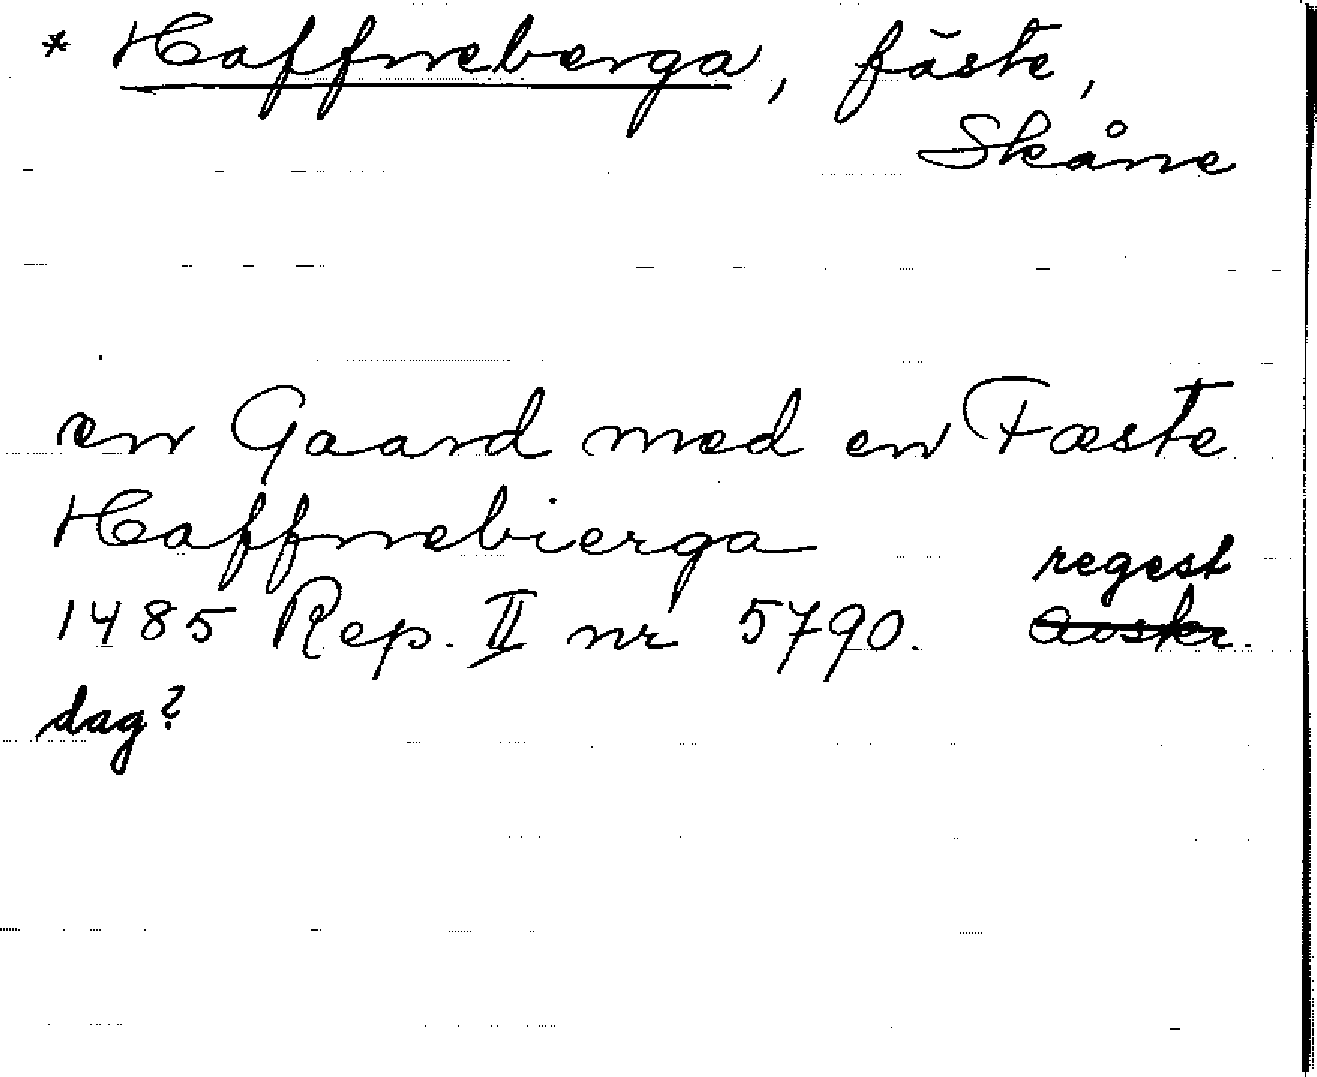 * Haffneberga, fäste,
Skåne
en Gaard med en Fæste
Haffnebierga
regest
1485 Rep. II nr 5790. avskr.
dag?